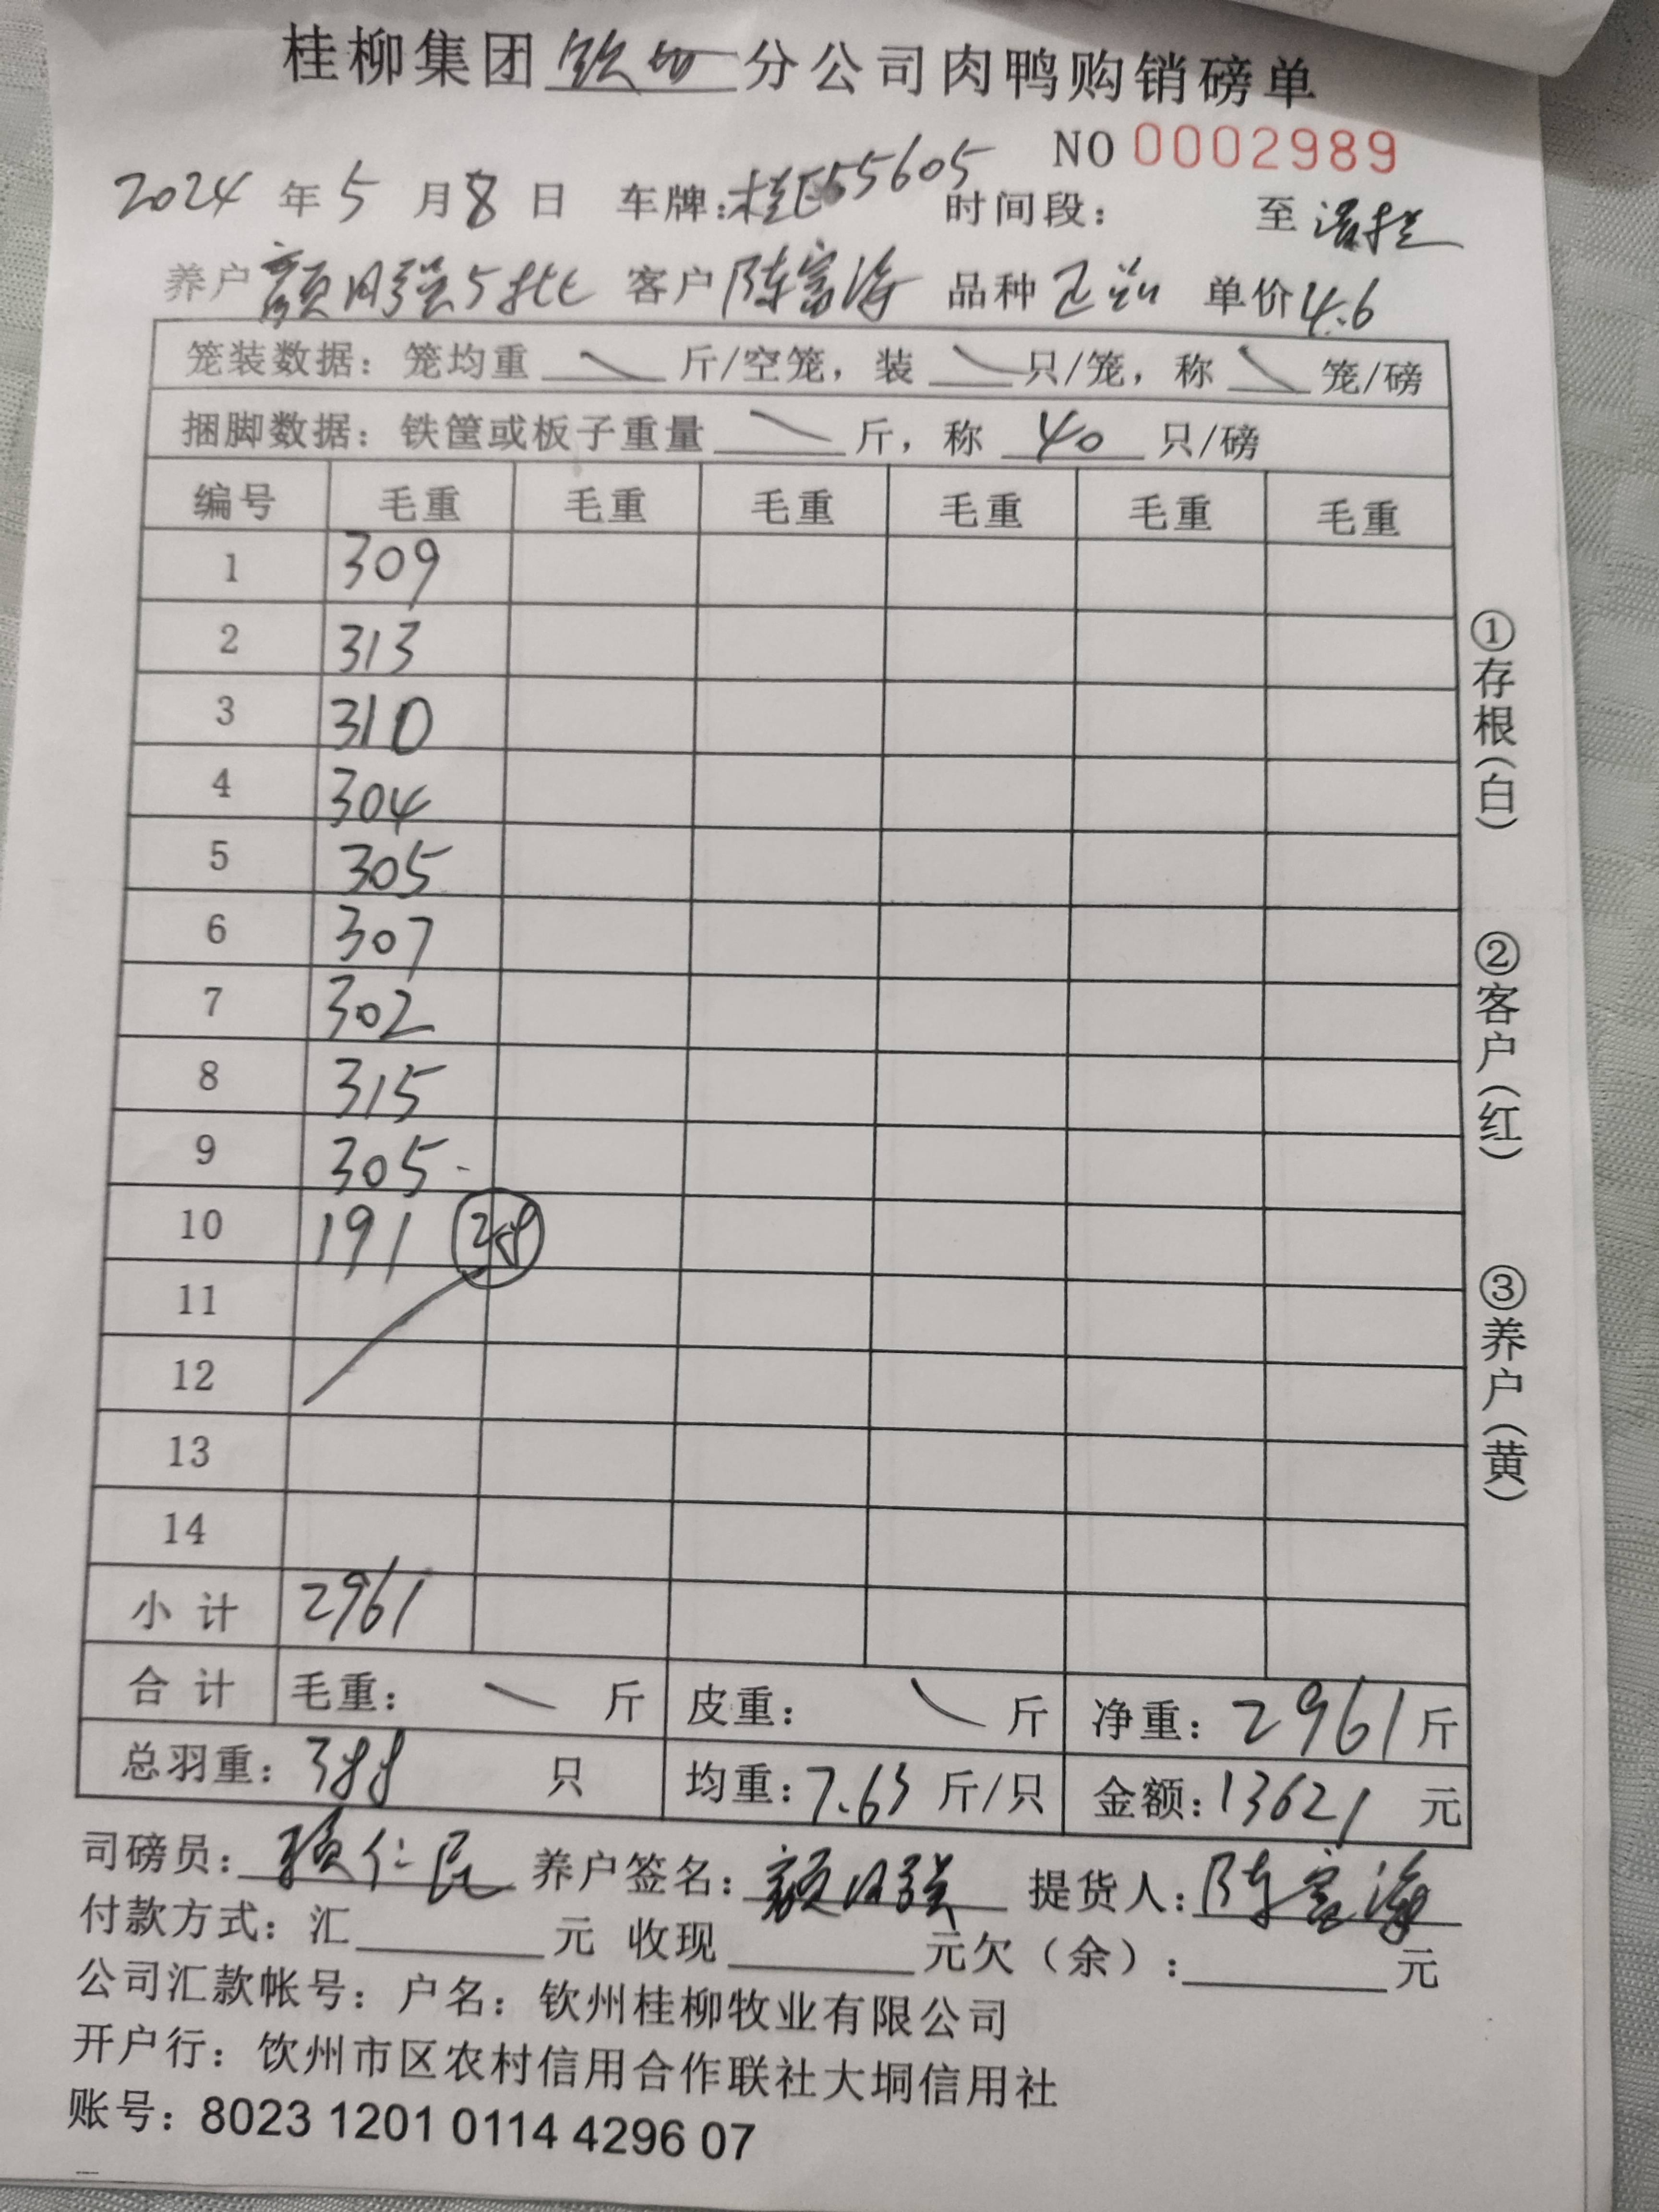 桂柳集团钦州分公司肉鸭购销磅单
NO 0002989
2024 年 5 月 8 日 车牌:桂E55605 时间段: 至
养户 颜日强5批 客户 陈富海 品种 单价 4.6
笼装数据: 笼均重 斤/空笼, 装 只/笼, 称 笼/磅
捆脚数据: 铁筐或板子重量 斤, 称 40 只/磅
编号 毛重 毛重 毛重 毛重 毛重 毛重
1 309
2 313
3 310
4 304
5 305
6 307
7 302
8 315
9 305
10 191 28
11
12
13
14
小计 2961
合计 毛重: 斤 皮重: 斤 净重: 2961 斤
总羽重: 388 只 均重: 7.63 斤/只 金额: 13621 元
司磅员: 仁民 养户签名: 颜日强 提货人: 陈富海
付款方式: 汇 元 收现 元欠(余): 元
公司汇款帐号: 户名: 钦州桂柳牧业有限公司
开户行: 饮州市区农村信用合作联社大垌信用社
账号: 8023 1201 0114 4296 07
①存根(白)
②客户(红)
③养户(黄)